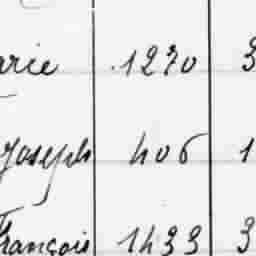 arie 1270 3
Joseph 406 1
François 1433 3